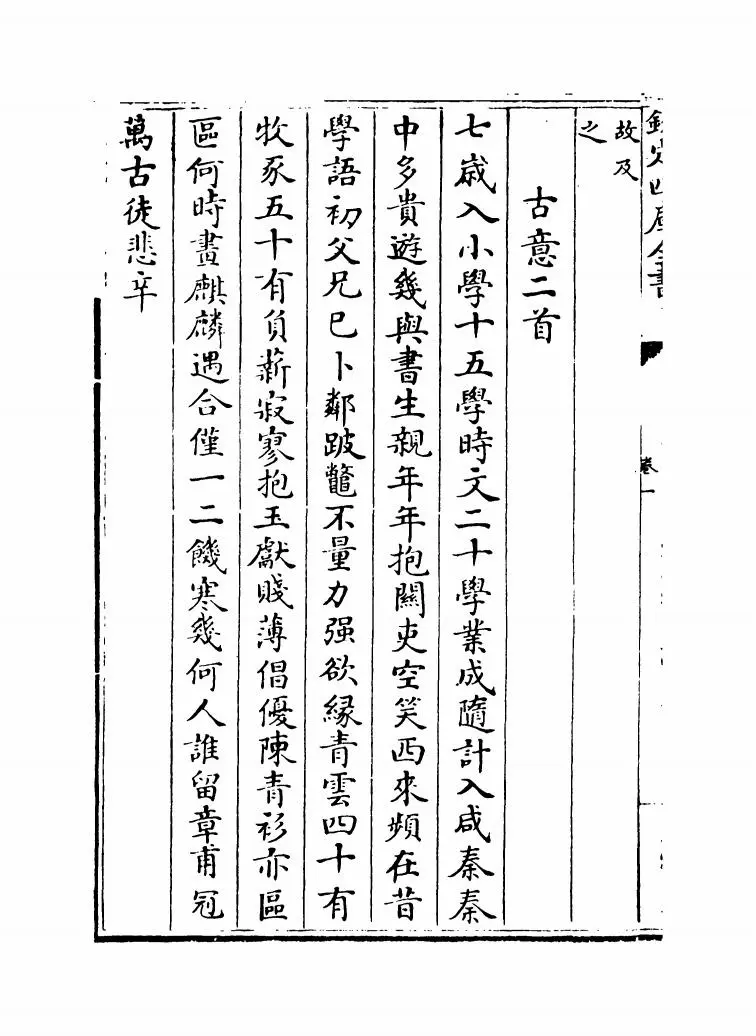 欽定四庫全書
卷一
故及
之
古意二首
七歲入小學十五學時文二十學業成隨計入咸秦秦
中多貴遊幾與書生親年年抱關吏空笑西來頻在昔
學語初父兄已卜鄰跛鼈不量力强欲縁青雲四十有
牧豕五十有負薪寂寥抱玉獻賤薄倡優陳青衫亦區
區何時畫麒麟遇合僅一二饑寒幾何人誰留章甫冠
萬古徒悲辛